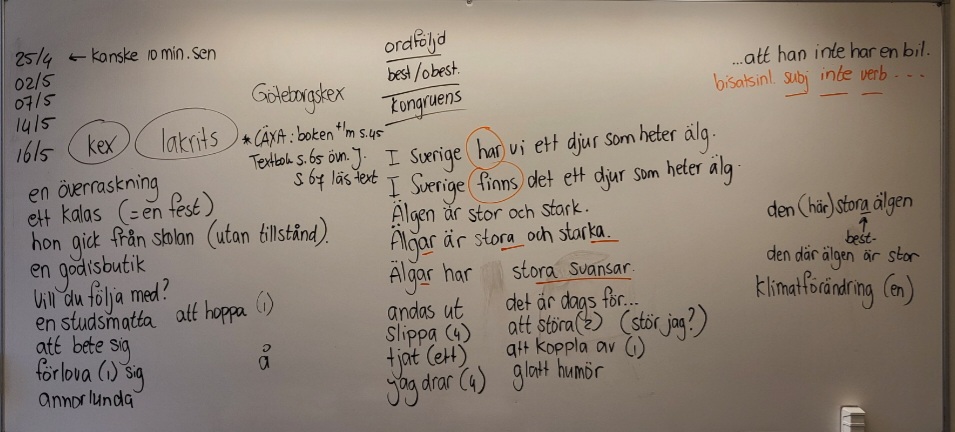 25/4 ← kanske 10 min. sen
02/5
07/5
14/5
16/5
kex
lakrits
Göteborgskex
* LÄXA: boken t/m s.45
Textbok s.65 övn. J.
s.67 läs text
en överraskning
ett kalas (=en fest)
hon gick från skolan (utan tillstånd).
en godisbutik
Vill du följa med?
en studsmatta att hoppa (1)
att bete sig
förlova (1) sig
annorlunda
å
ordföljd
best/obest.
kongruens
I Sverige har vi ett djur som heter älg.
I Sverige finns det ett djur som heter älg.
Älgen är stor och stark.
Älgar är stora och starka.
Älgar har stora svansar.
andas ut
slippa (4)
tjat (ett)
jag drar (4)
det är dags för...
att störa(2) (stör jag?)
att koppla av (1)
glatt humör
...att han inte har en bil.
bisatsinl. subj inte verb ...
den (här) stora älgen
↑
best.
den där älgen är stor
klimatförändring (en)